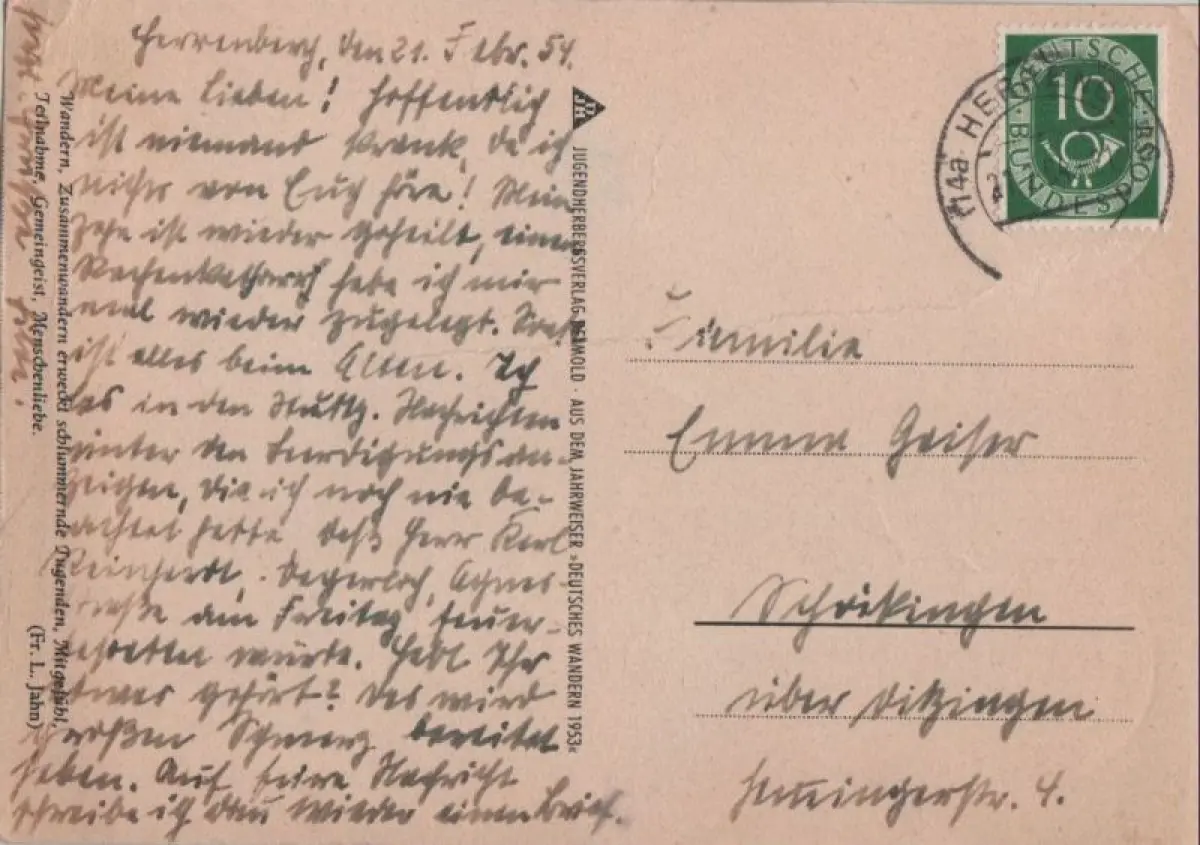 Herrenberg, den 21. Febr. 54.
Meine Lieben! Hoffentlich
ist niemand krank, da ich
nichts von Euch höre! Mein
Zehe ist wieder geheilt, einen
Rachenkatharrh habe ich mir
mal wieder zugelegt. Sonst
ist alles beim Alten. Ich
las in den Stuttg. Nachrichten
hinter den Beerdigungsan-
zeigen, die ich noch nie be-
achtet hatte daß Herr Karl
Reinhardt, Degerloch, Agnes-
straße am Freitag feuer-
bestattet wurde. Habt Ihr
etwas gehört? Das wird
großen Schmerz bereitet
haben. Auf Eure Nachricht
schreibe ich dann wieder einen Brief.
Wandern, Zusammenwandern erweckt schlummernde Tugenden, Mitgefühl,
Teilnahme, Gemeingeist, Menschenliebe.
(Fr. L. Jahn)
DJH
JUGENDHERBERGSVERLAG DETMOLD · AUS DEM JAHRWEISER »DEUTSCHES WANDERN 1953«
DEUTSCHE
10
BUNDESPOST
(14a) HERRENBERG
Familie
Emma Gaiser
Schöckingen
über Ditzingen
Hemmingerstr. 4.